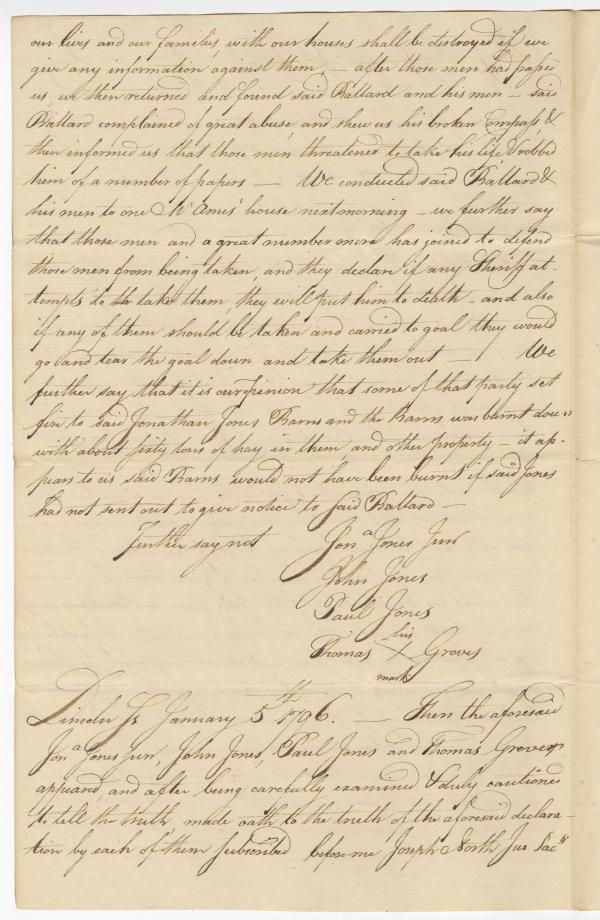 our lives and our families, with our houses shall be destroyed if we
give any information against them, — after those men had passed
us, we then returned and found said Ballard and his men — said
Ballard complained of great abuse, and shew us his broken Compass, &
then informed us that those men threatened to take his life, & robbed
him of a number of papers — We conducted said Ballard &
his men to one Mr Ames' house next morning — we further say
that those men and a great number more has joined to defend
those men from being taken, and they declare if any Sheriff at-
tempts to take them, they will put him to death — and also
if any of them should be taken and carried to goal they would
go and tear the goal down and take them out — We
further say that it is our opinion that some of that party set
fire to said Jonathan Jones Barns and the Barns was burnt down
with about sixty tons of hay in them, and other property — it ap-
pears to us said Barns would not have been burnt if said Jones
had not sent out to give notice to said Ballard —
further say not Jona Jones Junr
John Jones
Paul Jones
his
Thomas X Groves
mark
Lincoln Ss January 5th 1796. — Then the aforesaid
Jona Jones jun, John Jones, Paul Jones and Thomas Groves
appeared, and after being carefully examined & duly cautioned
to tell the truth made oath to the truth of the aforesaid declara-
tion by each of them Subscribed before me Joseph North Jus Pacs